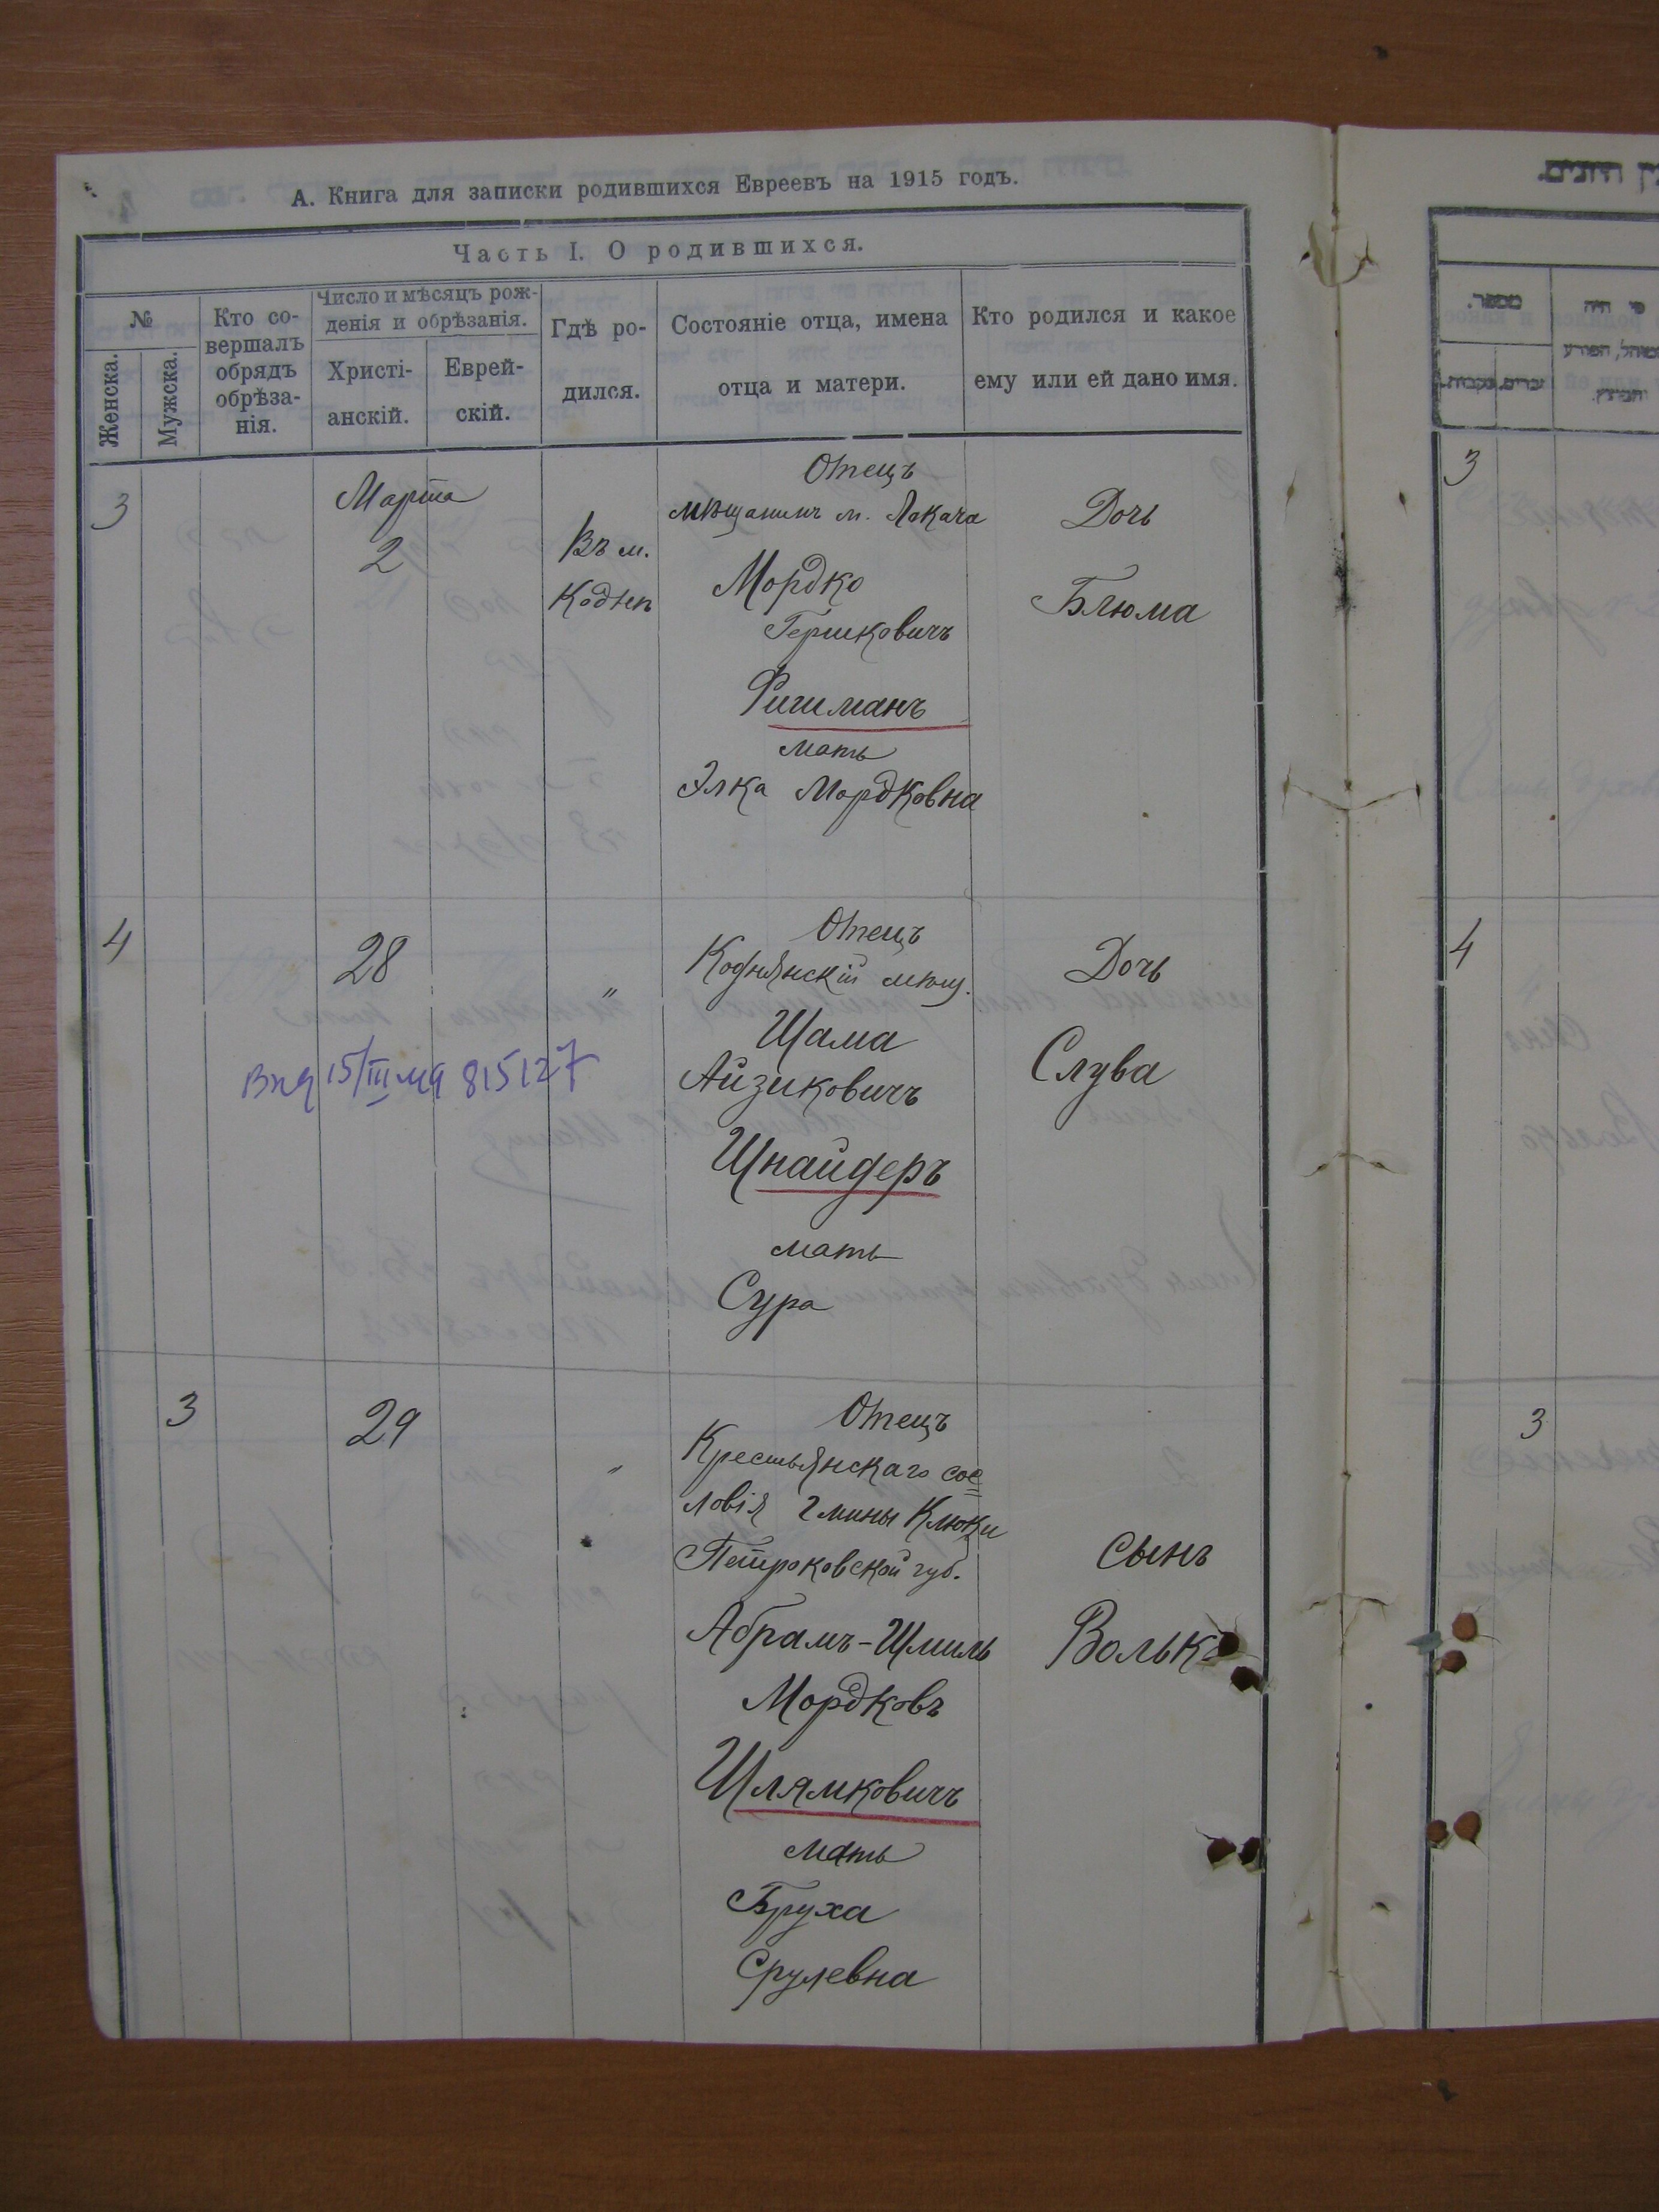 А. Книга для записки родившихся Евреевъ на 1915 годъ.
Часть I. О родившихся.
№
Женска.
Мужска.
Кто со-
вершалъ
обрядъ
обрѣза-
нія.
Число и мѣсяцъ рож-
денія и обрѣзанія.
Христі-
анскій.
Еврей-
скій.
Гдѣ ро-
дился.
Состояніе отца, имена
отца и матери.
Кто родился и какое
ему или ей дано имя.
3
Марта
2
Въ м.
Коднѣ
Отецъ
мѣщанинъ м. Локача
Мордко
Гершковичъ
мать
Элка Мордковна
Дочь
Блюма
4
28
"
Отецъ
Коднянскій мѣщ.
Шама
Айзиковичъ
Шнайдеръ
мать
Сура
Дочь
Слува
15/III
3
29
"
Отецъ
Крестьянскаго сос=
ловія гмины Клюки
Петроковской губ.
Абрамъ-Шмиль
Мордковъ
Шлямковичъ
мать
Бруха
Срулевна
Сынъ
Волько
3
4
3